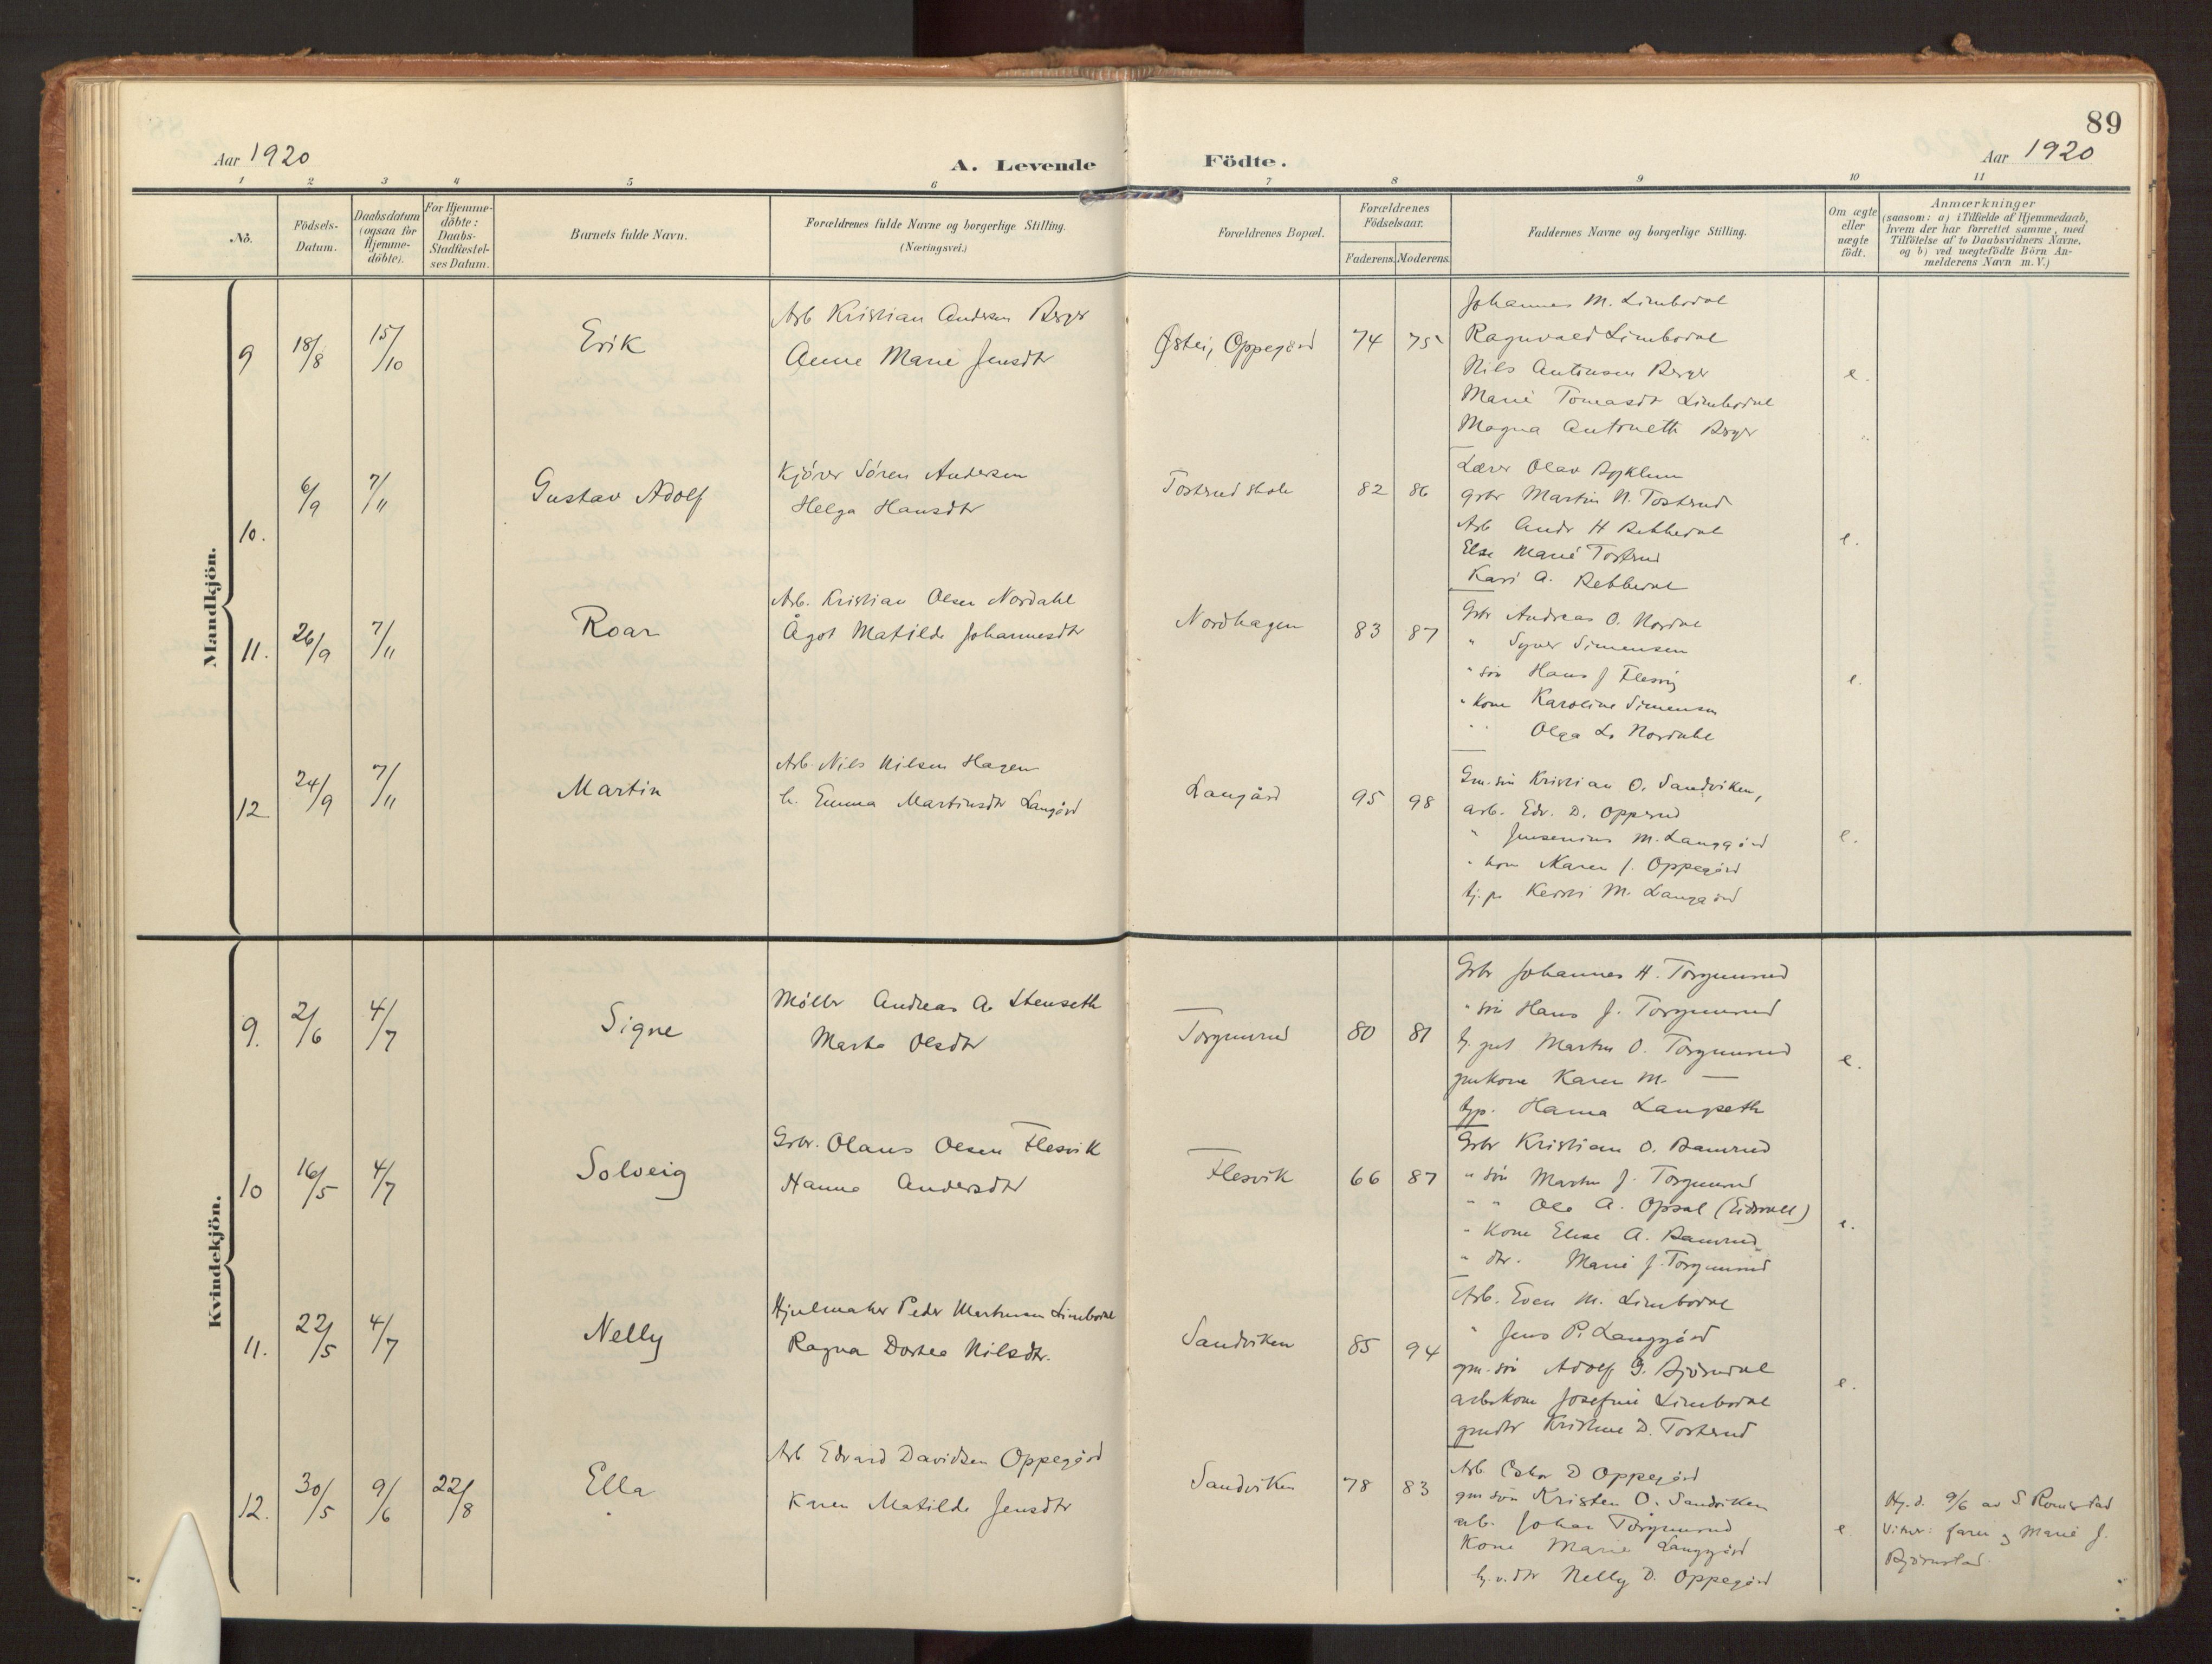 89
Aar 1920
A. Levende Födte.
Aar 1920
1 2 3 4 5 6 7 8 9 10 11
No.
Födsels-
Datum.
Daabsdatum
(ogsaa for
Hjemme-
döbte).
For Hjemme-
döbte:
Daabs-
Stadfæstel-
ses Datum.
Barnets fulde Navn.
Forældrenes fulde Navne og borgerlige Stilling.
(Næringsvei.)
Forældrenes Bopæl.
Forældrenes
Födselsaar.
Faderens. Moderens.
Faddernes Navne og borgerlige Stilling.
Om ægte
eller
uægte
födt.
Anmærkninger
(saasom: a) i Tilfælde af Hjemmedaab,
hvem der har forrettet samme, med
Tilföielse af to Daabsvidners Navne.
og b) ved uægtefödte Börn An-
melderens Navn m. V.)
Mandkjön.
9 18/8 15/10
Erik
Arb Kristian Andersen Berger
Anne Marie Jensdtr
Østei, Oppegård
74 75
Johannes M. Limbodal
Ragnvald Limbodal
Nils Antonsen Berger
Marie Tomasdt Limbodal
Magna Antonette Berger
e.
10. 6/9 7/11
Gustav Adolf
Kjörer Sören Andersen
Helga Hansdtr
Tosterud skole
82 86
Lærer Olav
grbr Martin N. Tosterud
Arb Andr H
Else Marie Tosterud
Kari A.
e.
11. 26/9 7/11
Roar
Arb. Kristian Olsen Nordahl
Ågot Matilde Johannesdtr
Nordhagen
83 87
Grbr Andreas O. Nordal
" Syver Simensen
" sön Hans J Flesvig
" kone Karoline Simensen
" " Olga L. Nordahl
e.
12 24/9 7/11
Martin
Arb. Nils Nilsen Hagen
h. Emma Martinsdtr Langård
Langård
95 98
Gm. sön Kristian O. Sandviken,
arb. Edv. D. Opperud
" Jensenius M. Langgård
" kone Karen J. Oppegård
tj. p. Kersti M. Langgård
e.
Kvindekjön.
9. 2/6 4/7
Signe
Möller Andreas A. Stenseth
Marta Olsdtr
Torgunrud
80 81
Grbr Johannes H. Torgunrud
" sön Hans J. Torgunrud
tj. gut Martin O. Torgunrud
gmkone Karen M. —
tjp. Hanna Langseth
e.
10 16/5 4/7
Solveig
Grbr. Olaus Olsen Flesvik
Hanna Andersdtr
Flesvik
66 87
Grbr Kristian O. Bamrud
" sön Martin J. Torgunrud
" " Ole A. Opsal (Eidsvoll)
" Kone Elise A. Bamrud
" dtr. Marie J. Torgunrud
e.
11. 22/5 4/7
Nelly
Hjulmaker Peder Martinsen Limbodal
Ragna Dortea Nilsdtr.
Sandviken
85 94
Arb. Even M. Limbodal
" Jens P. Langgård
gm. sön Adolf G. Björndal
arbskone Josefine Limbodal
gmdtr Kristine D. Tosterud
e.
12. 30/5 9/6 22/8
Ella
Arb Edvard Davidsen Oppegård
Karen Matilde Jensdtr
Sandviken
78 83
Arb. Oskar D Oppegård
gm sön Kristen O. Sandviken
arb. Johan Torgunrud
Kone Marie Langgård
tj. v. dtr Nelly D. Oppegård
e.
Hj. d. 9/6 av S Romstad
Vitner: faren og Marie J.
Björnstad.